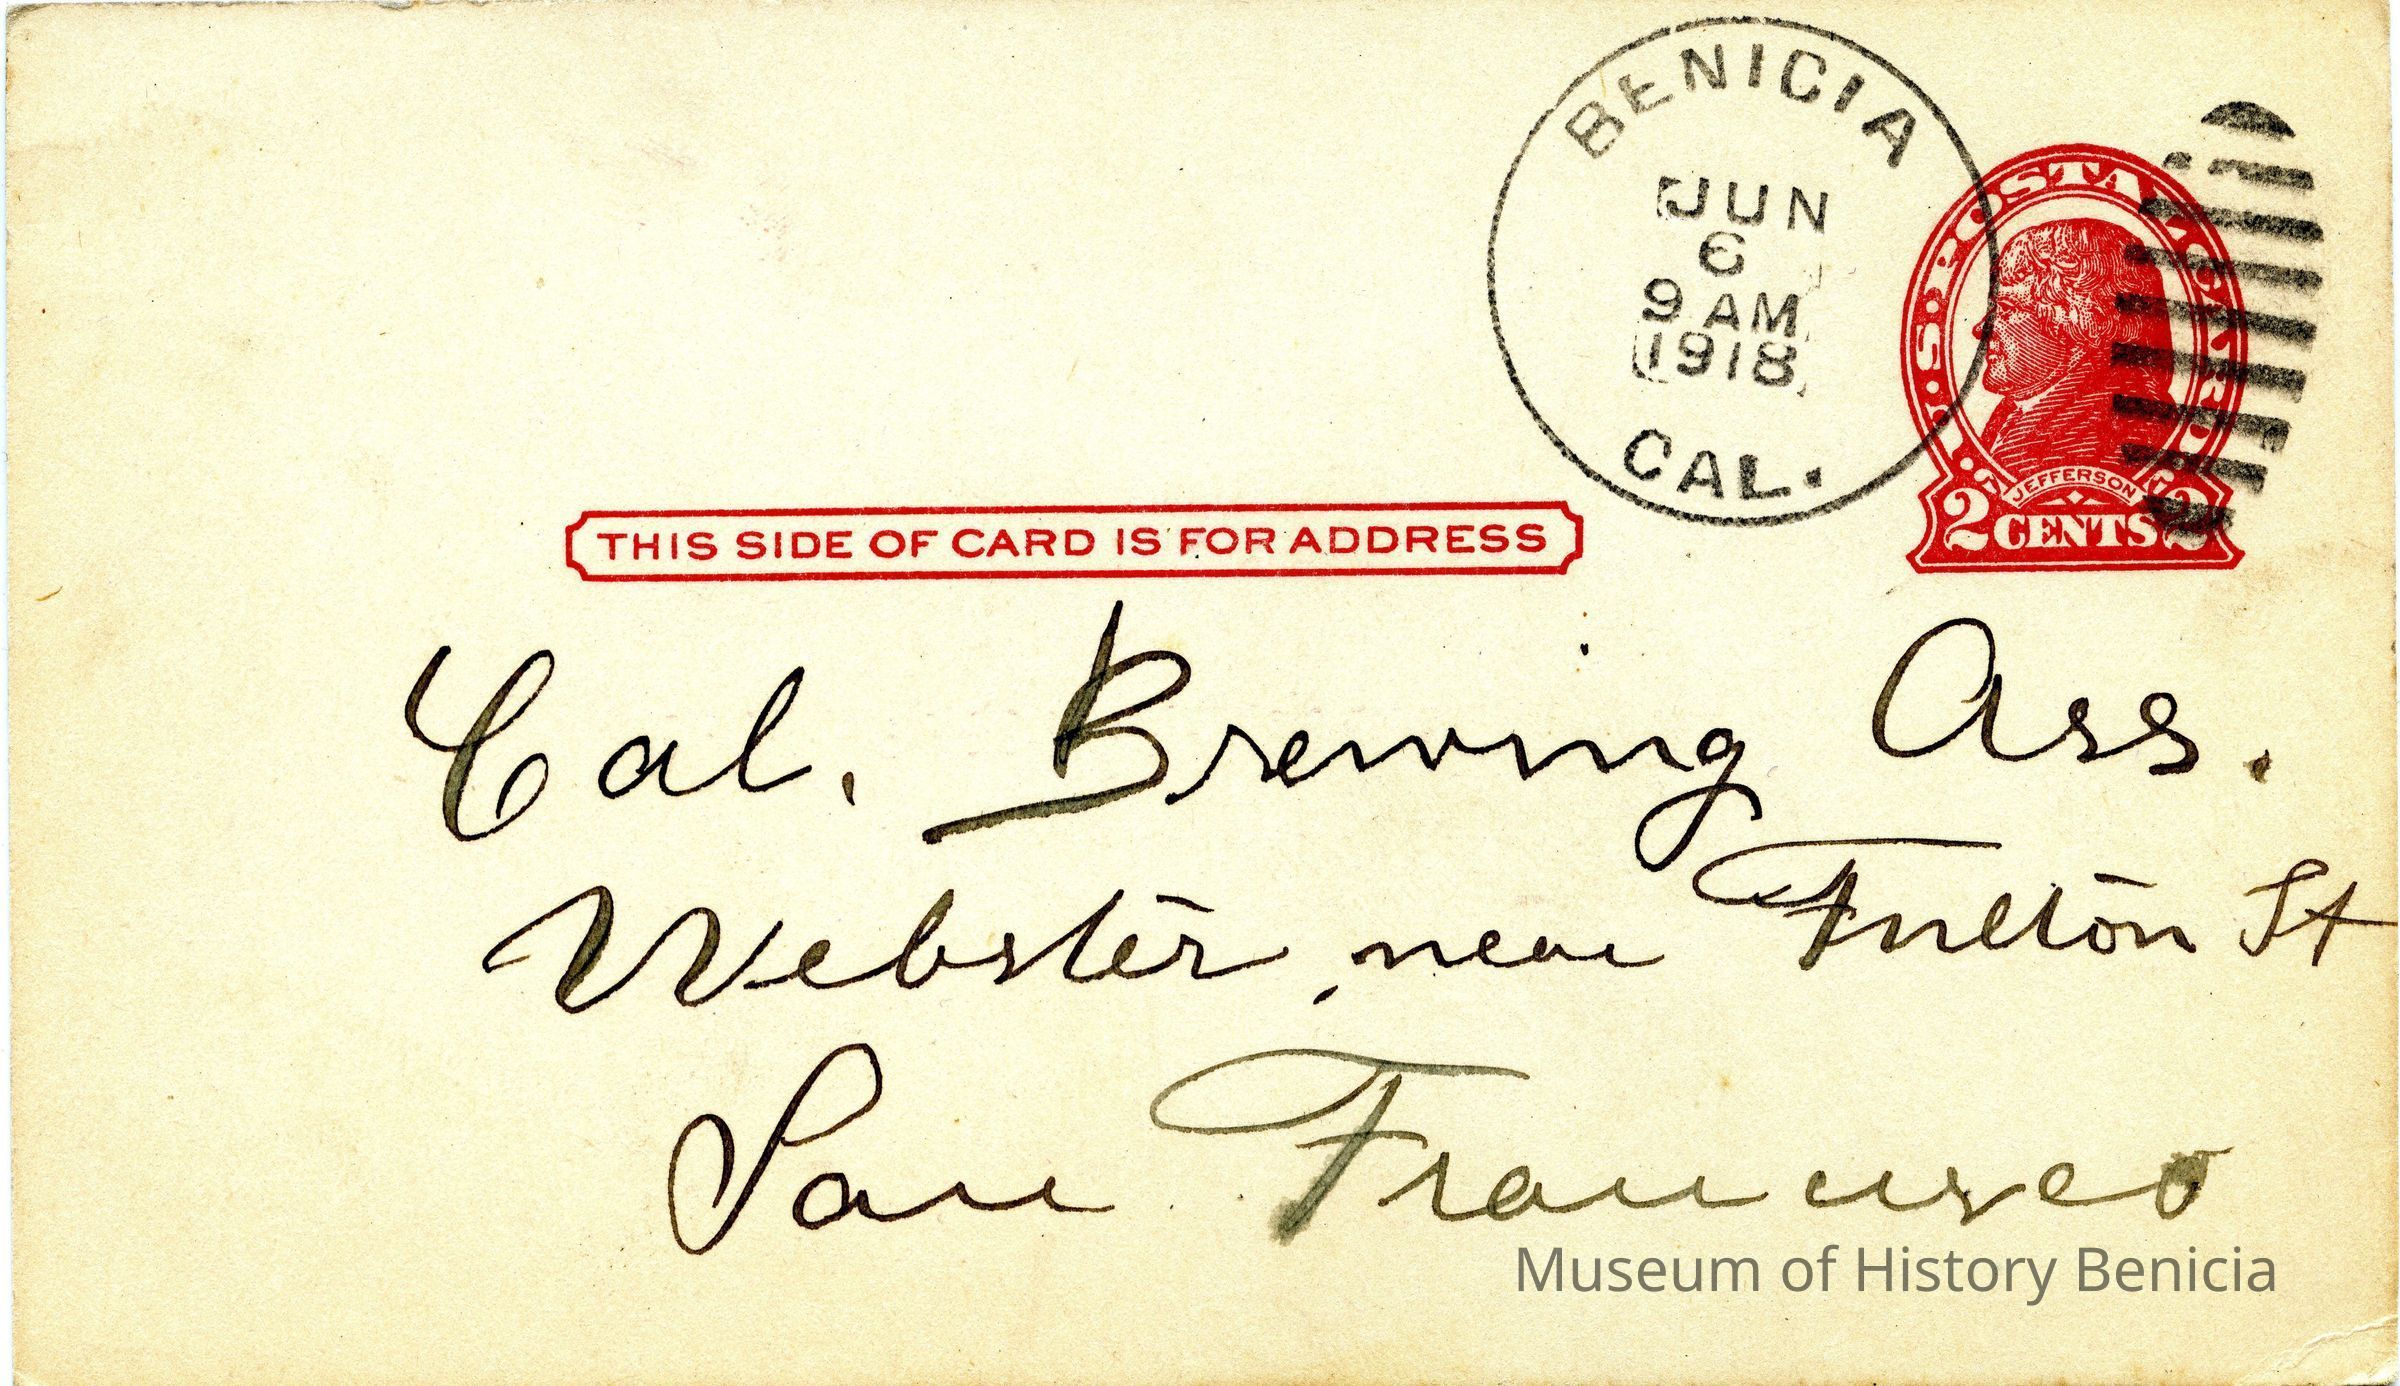 BENICIA
JUN
6
9 AM
1918
CAL.
U.S. POSTAL CARD
JEFFERSON
2 CENTS 2
THIS SIDE OF CARD IS FOR ADDRESS
Cal. Brewing Ass.
Webster, near Fulton St
San Francisco
Museum of History Benicia